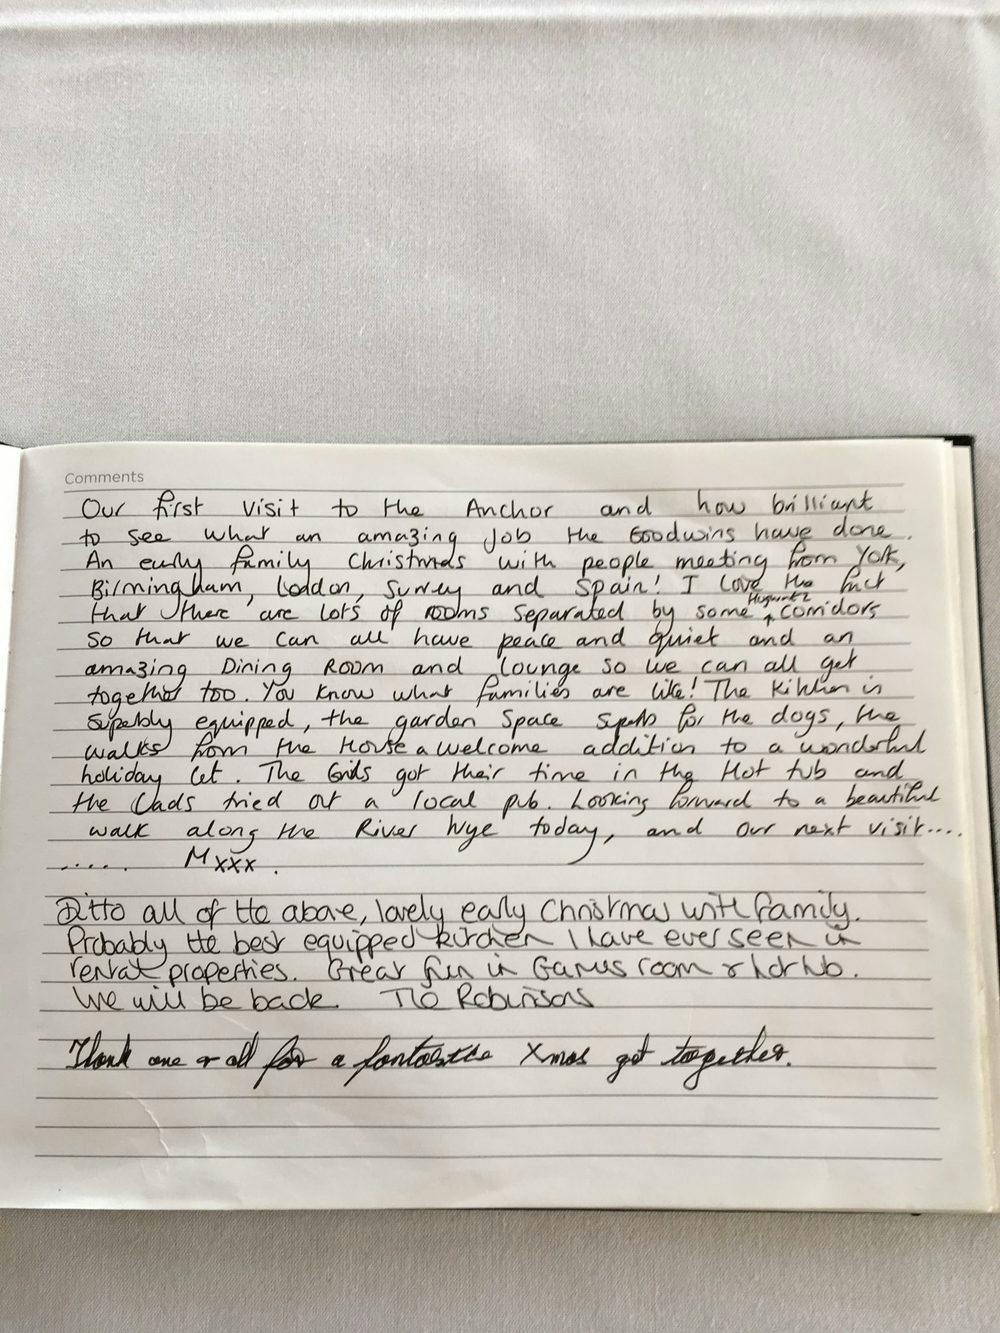 Comments
Our first visit to the Anchor and how brilliant
to see what an amazing job the Goodwins have done.
An early family Christmas with people meeting from York,
Birmingham, London, Surrey and Spain! I love the fact
that there are lots of rooms separated by some corridors
so that we can all have peace and quiet and an
amazing Dining Room and lounge so we can all get
together too. You know what families are like! The kitchen is
superbly equipped, the garden space superb for the dogs, the
walks from the House a welcome addition to a wonderful
holiday let. The Girls got their time in the Hot tub and
the Dads tried out a local pub. Looking forward to a beautiful
walk along the River Wye today, and our next visit....
..... M xxx.
Ditto all of the above, lovely early Christmas with family.
Probably the best equipped kitchen I have ever seen in
rental properties. Great fun in Games room & hot tub.
We will be back. The Robinsons
Thank one & all for a fantastic Xmas get together.